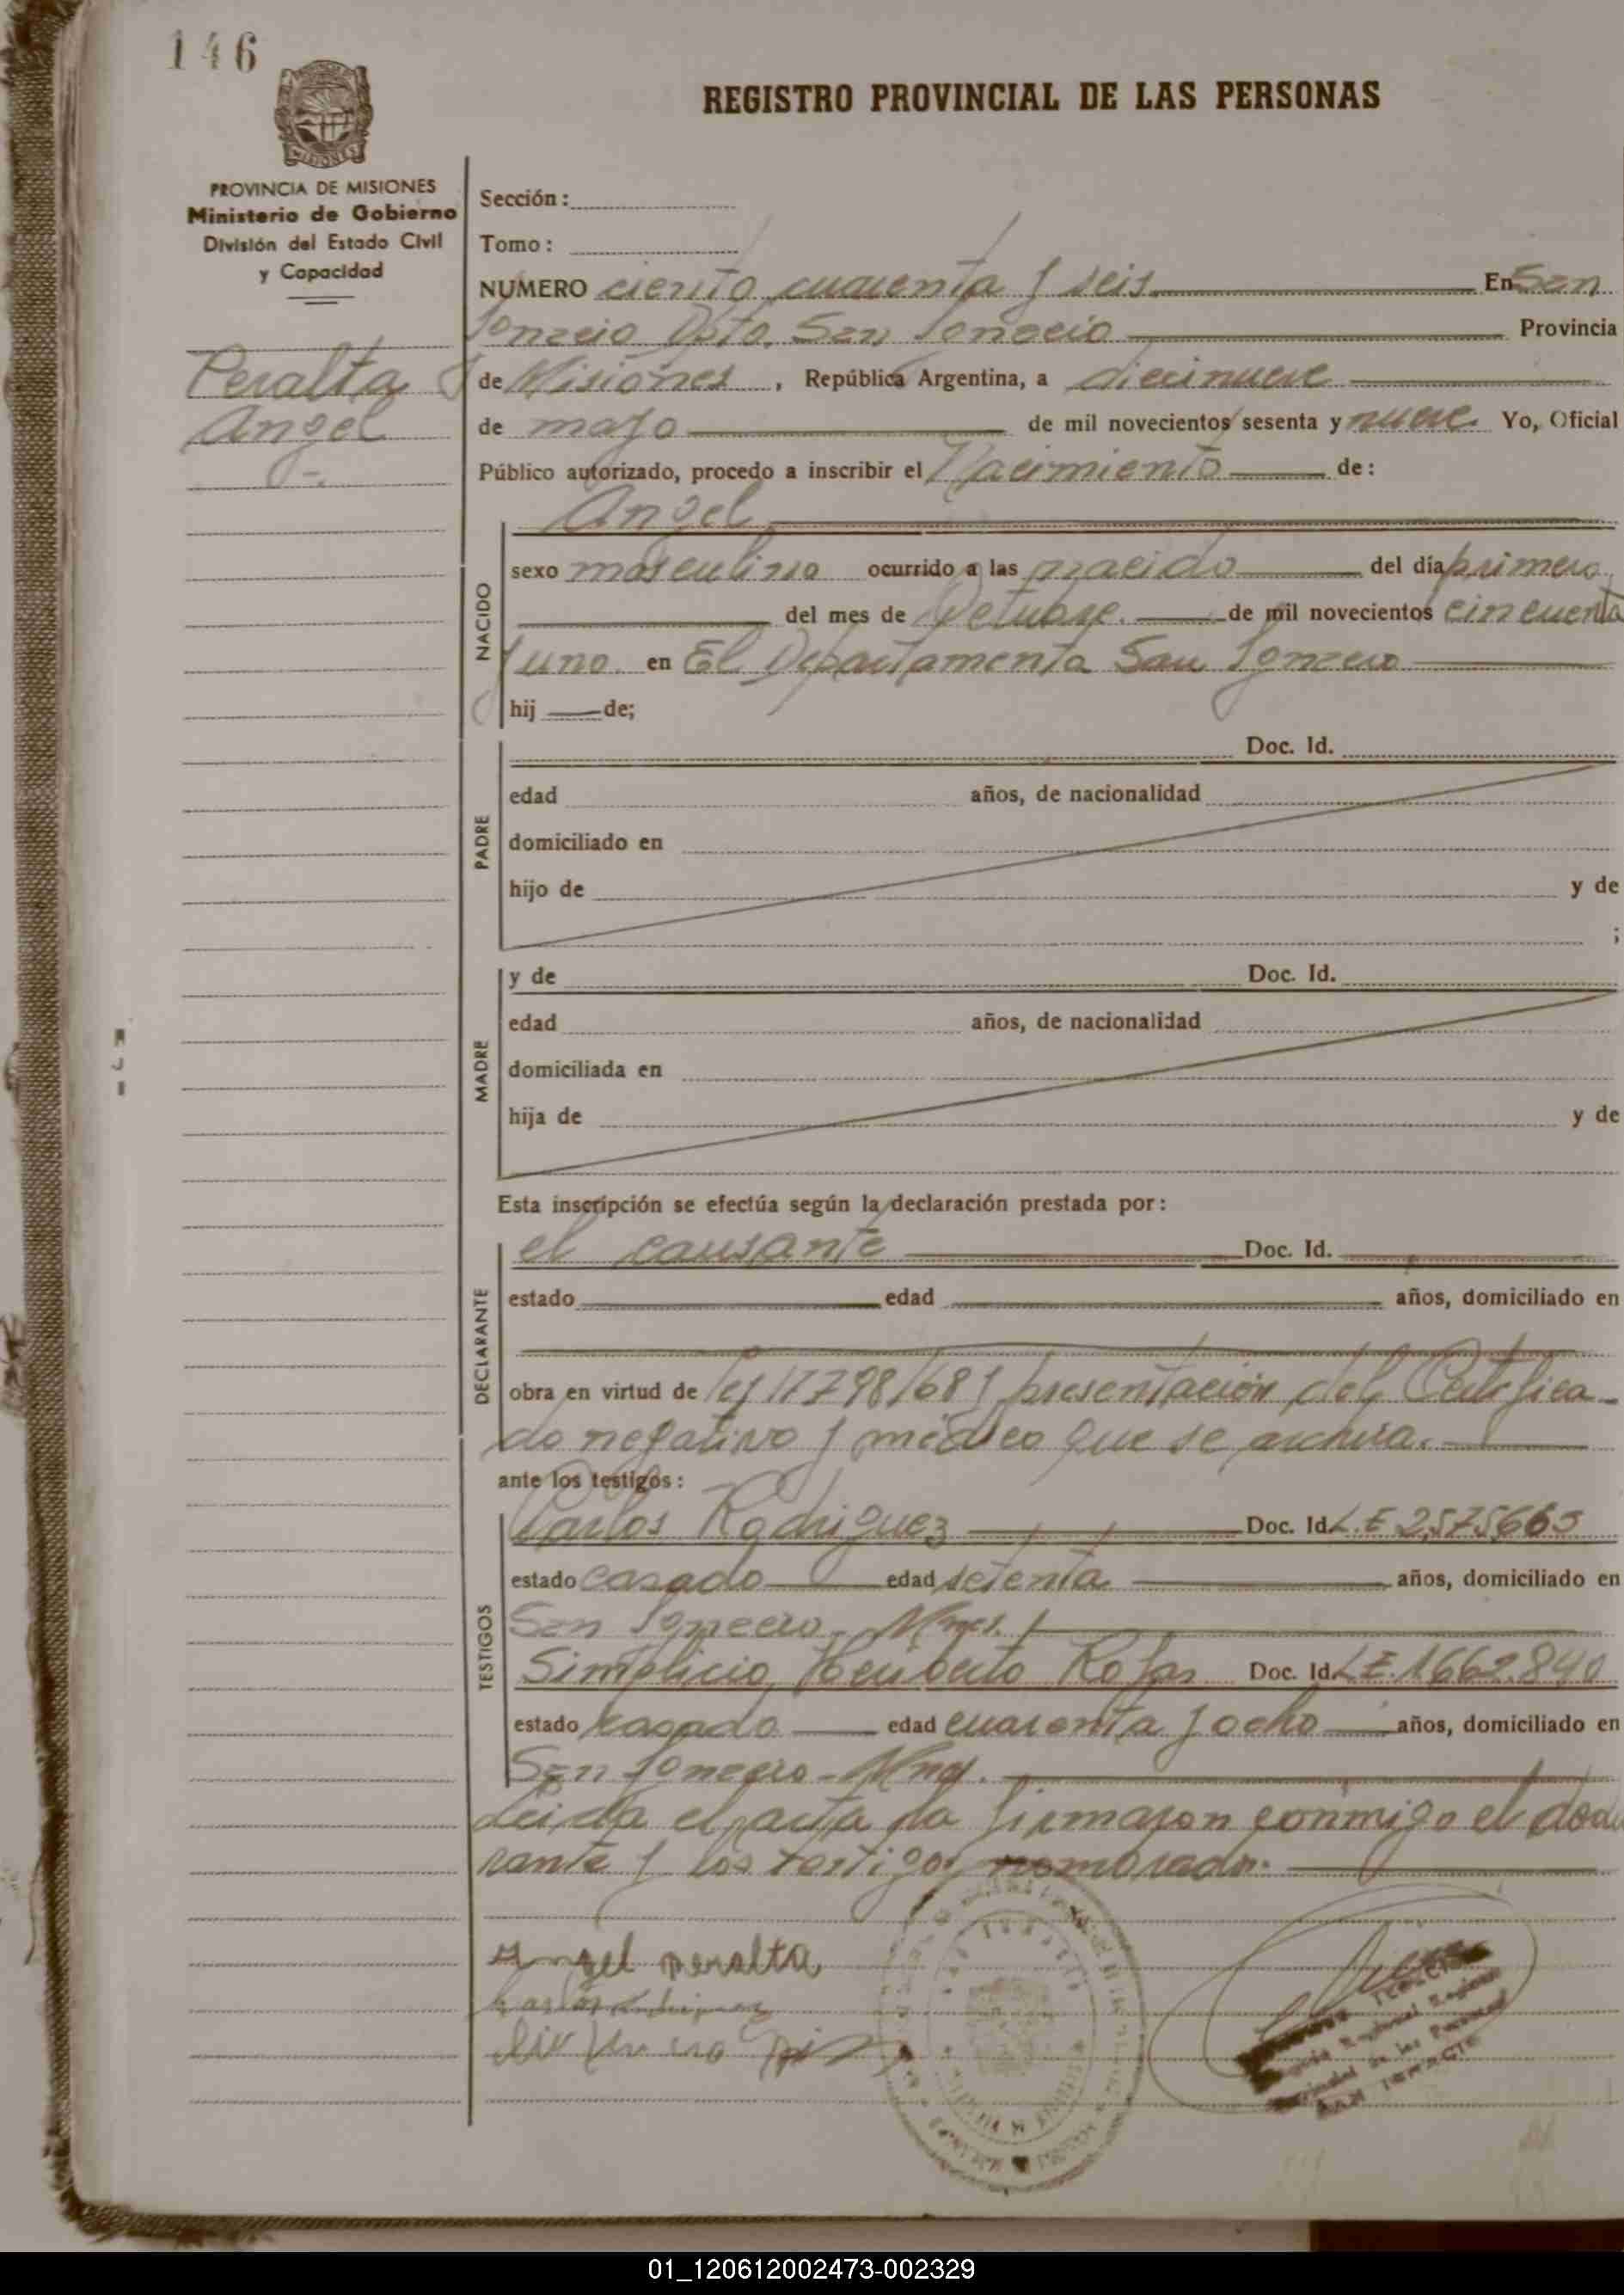 146
REGISTRO PROVINCIAL DE LAS PERSONAS
PROVINCIA DE MISIONES
Ministerio de Gobierno
División del Estado Civil
y Capacidad
Peralta
Angel
Sección:
Tomo:
NUMERO ciento cuarenta y seis En San
Ignacio Dpto. San Ignacio Provincia
de Misiones, República Argentina, a diecinueve
de mayo de mil novecientos sesenta y nueve. Yo, Oficial
Público autorizado, procedo a inscribir el Nacimiento de:
Angel
NACIDO
sexo masculino ocurrido a las nacido del día primero
del mes de Octubre. de mil novecientos cincuenta
y uno en El Departamento San Ignacio
hij de;
PADRE
Doc. Id.
edad años, de nacionalidad
domiciliado en
hijo de y de
;
MADRE
y de Doc. Id.
edad años, de nacionalidad
domiciliada en
hija de y de
Esta inscripción se efectúa según la declaración prestada por:
DECLARANTE
el causante Doc. Id.
estado edad años, domiciliado en
obra en virtud de ley 17798/68 y presentación del Certifica-
do negativo y médico que se archiva.
ante los testigos:
TESTIGOS
Carlos Rodriguez Doc. Id. L.E 2,575665
estado casado edad setenta años, domiciliado en
San Ignacio - Mnes.
Simplicio Heriberto Rojas Doc. Id. L.E. 1.662.840
estado casado edad cuarenta y ocho años, domiciliado en
San Ignacio - Mnes.
Leida el acta la firmaron conmigo el decla
rante y los testigos nombrados.
Angel peralta
01_120612002473-002329